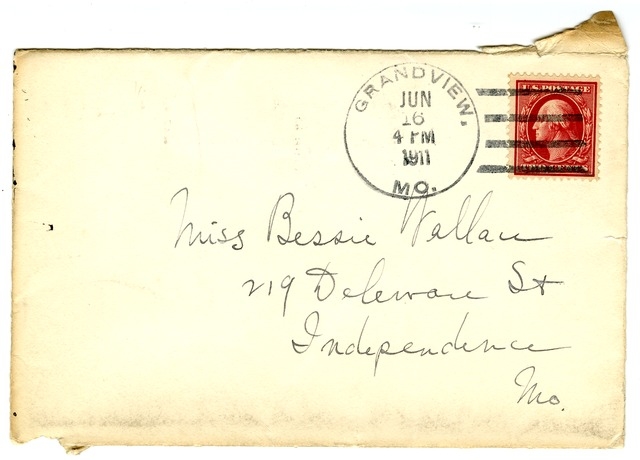 GRANDVIEW.
JUN
16
4 PM
1911
MO.
U.S. POSTAGE
Miss Bessie Wallace
219 Deleware St
Independence
Mo.